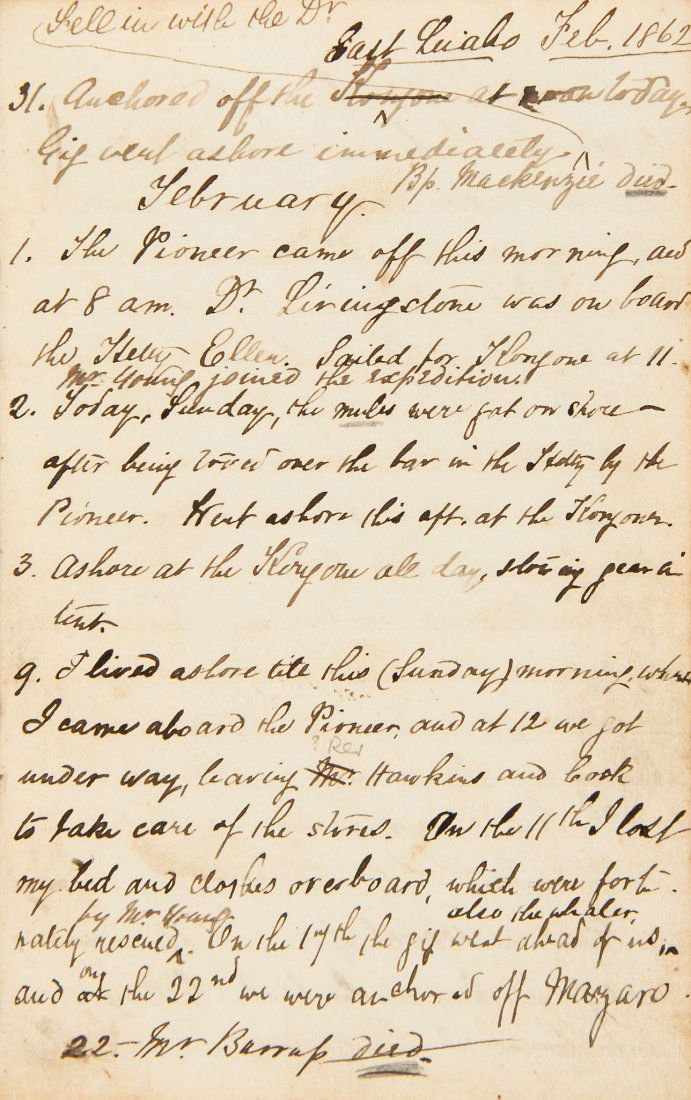 Fell in with the Dr
East Luabo Feb. 1862
31. Anchored off the Kongone at noon today.
Gig went ashore immediately.
Bp. Mackenzie died.
February.
1. The Pioneer came off this morning, and
at 8 am. Dr Livingstone was on board
the Hetty Ellen. Sailed for Kongone at 11.
Mr Young joined the expedition.
2. Today, Sunday, the mules were got on shore –
after being towed over the bar in the Hetty by the
Pioneer. Went ashore this aft. at the Kongone.
3. Ashore at the Kongone all day, stowing gear in
tent.
9. I lived ashore till this (Sunday) morning, when
I came aboard the Pioneer, and at 12 we got
? Rev
under way, leaving Mr. Hawkins and Cook
to take care of the stores. On the 11th I lost
my bed and clothes overboard, which were fortu-
by Mr Young also the whaler,
nately rescued. On the 17th the gig went ahead of us,
and on the 22nd we were anchored off Mazaro.
22 – Mr Burrup died.